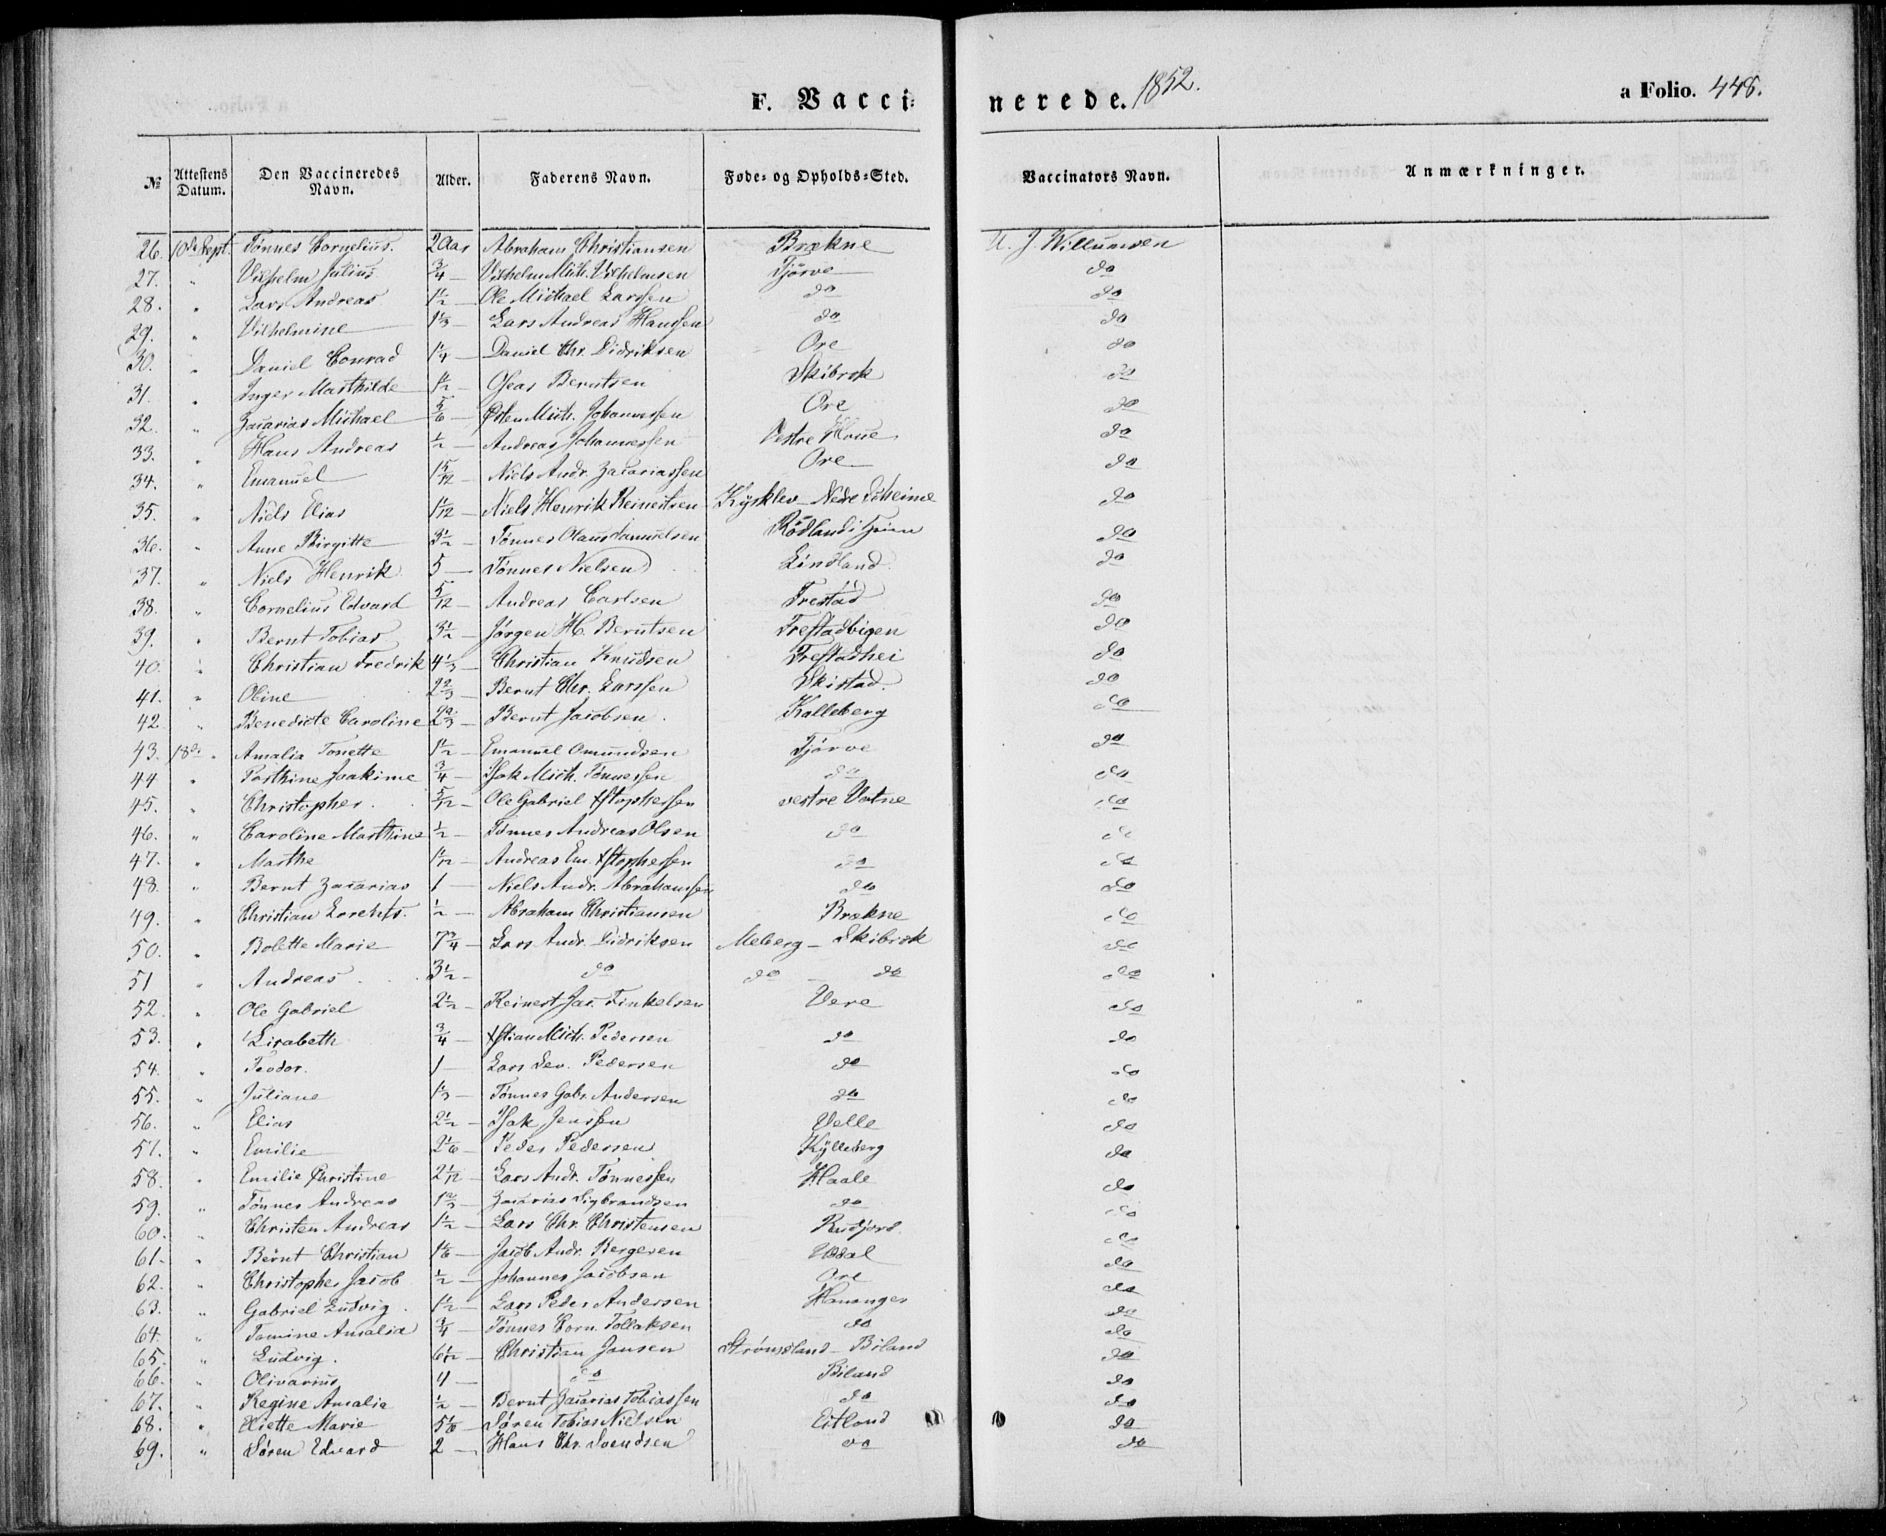 F. Vacci=nerede. 1852. a Folio. 448.
№ Attestens Datum. Den Vaccineredes Navn. Alder. Faderens Navn. Føde= og Opholds=Sted. Vaccinators Navn. Anmærkninger.
26. 10de Sept. Tønnes Cornelius. 2 Aar Abraham Christiansen Brækne J. Willumsen
27. " Vilhelm Julius ¾ — Vilhelm Mich. Vilhelmsen Tjørve do
28. " Lars Andreas 1½ — Ole Michael Larssen do do
29. " Vilhelmine 1⅓ — Lars Andreas Hanssen do do
30. " Daniel Conrad 1¼ — Daniel Chr. Didriksen Ore do
31. " Inger Marthilde 1½ — Oseas Berntsen Skibrok do
32. " Zacarias Michael 5/6 — Østen Mich. Johannessen Ore do
33. " Hans Andreas ½ — Andreas Johannessen Vestre Houe do
34. " Emanuel 1 5/12 — Niels Andr. Zacariassen Ore do
35. " Niels Elias 1 1/12 — Niels Henrik Reinertsen Kysklev — Nedre do
36. " Anne Birgitte 3½ — Tønnes Olaus Samuelsen Rødlandsheien do
37. " Niels Henrik 5 — Tønnes Nielsen Lindland do
38. " Cornelius Edvard 5/12 — Andreas Carlsen Trestad do
39. " Bernt Tobias 3½ — Jørgen H. Berntsen Trestadbigen do
40. " Christian Fredrik 4⅓ — Christian Knudsen Trestadhei do
41. " Oline 2⅔ — Bernt Chr. Larssen Skistad. do
42. " Benedicte Caroline 2⅔ — Bernt Jacobsen. Kalleberg do
43. 18de " Amalia Tonette 1½ — Emanuel Omundsen Tjørve do
44 " Joakime ¾ — Isak Mich. Tønnessen do do
45. " Christopher. 5/12 — Ole Gabriel Xstophersen vestre Vatne do
46. " Caroline Marthine ½ — Tønnes Andreas Olsen do do
47. " Marthe 1½ — Andreas Em. Xstophersen do do
48. " Bernt Zacarias 1 — Niels Andr. Abrahamsen do do
49. " Christian Lorents. ½ — Abraham Christiansen Brækne do
50. " Bolette Marie 7¾ — Lars Andr. Didriksen Meberg — Skibrok do
51 " Andreas 3½ — do do — do do
52. " Ole Gabriel 2½ — Reinert Jac. Tinkelsen Vere do
53. " Lisabeth ¾ — Xstian Mich. Pedersen do do
54. " Teodor. 1 — Lars Lev. Pedersen do do
55. " Juliane 1⅓ — Tønnes Gabr. Andersen do do
56. " Elias 2½ — Isak Jenssen Velle do
57. " Emilie 2 1/6 — Peder Pedersen Kylleberg do
58. " Emilie Christine 2 1/12 — Lars Andr. Tønnessen Haale do
59. " Tønnes Andreas 1⅔ — Zacarias Sigbrandsen do do
60. " Christen Andreas 1½ — Lars Chr. Christensen Rudjord. do
61. " Bernt Christian 1 1/6 — Jacob Andr. Bergesen Vasal do
62. " Christopher Jacob ½ — Johannes Jacobsen Ore do
63. " Gabriel Ludvig. 1½ — Lars Peder Andersen Hananger do
64. " Tomine Amalia ¾ — Tønnes Corn. Tollaksen do do
65. " Ludvig. 6½ — Christian Jansen Strømsland — Biland do
66. " Olivarius 4 — do Biland do
67. " Regine Amalie ½ — Bernt Zacarias Tobiassen do do
68. " Marie 5 1/6 — Søren Tobias Nielsen Eitland do
69. " Søren Edvard 2 — Hans Chr. Svendsen do do